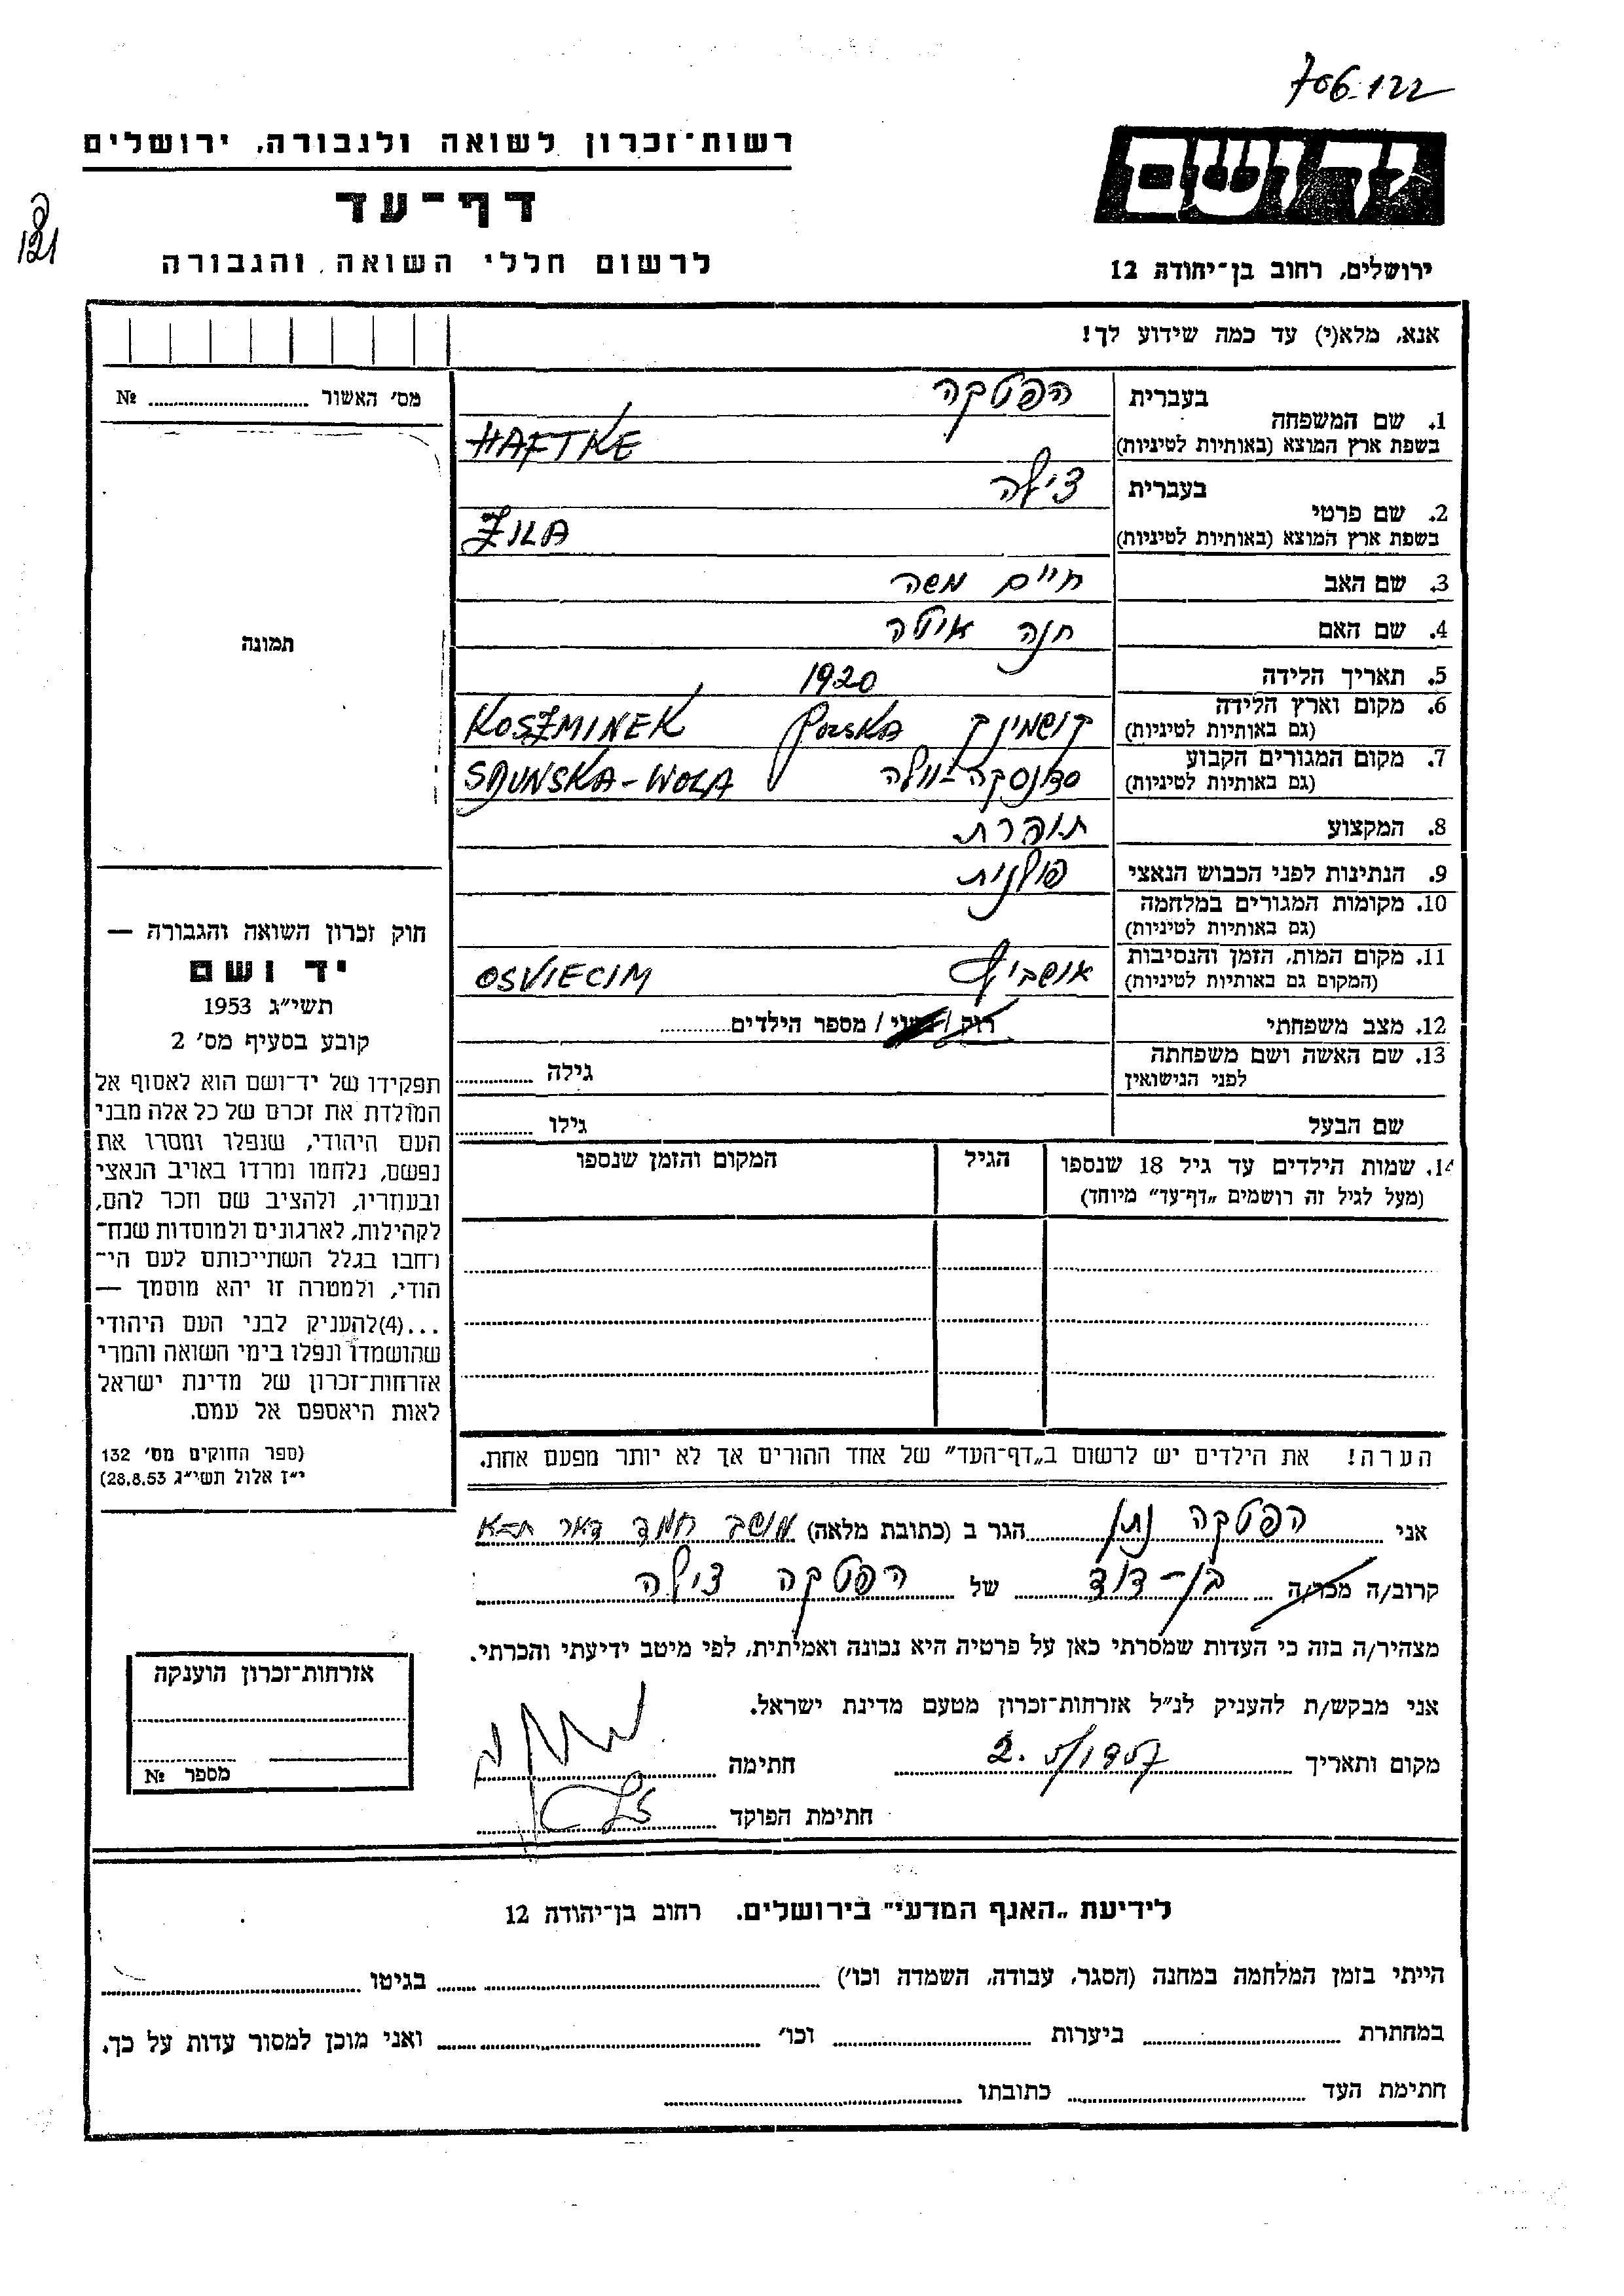 706.122
רשות־זכרון לשואה ולגבורה, ירושלים
יד ושם
דף־עד
לרשום חללי השואה והגבורה
ירושלים, רחוב בן־יהודה 12
אנא, מלא(י) עד כמה שידוע לך!
מס׳ האשור № ........
בעברית הפטקה
1. שם המשפחה
בשפת ארץ המוצא (באותיות לטיניות) HAFTKE
בעברית צילה
2. שם פרטי
בשפת ארץ המוצא (באותיות לטיניות) ZILA
3. שם האב חיים משה
4. שם האם חנה איטלה
תמונה
5. תאריך הלידה 1920
6. מקום וארץ הלידה קושמינק POLSKA KOSZMINEK
(גם באותיות לטיניות)
7. מקום המגורים הקבוע סדונסקה-וולה SDUNSKA-WOLA
(גם באותיות לטיניות)
8. המקצוע תופרת
9. הנתינות לפני הכבוש הנאצי פולנית
10. מקומות המגורים במלחמה
(גם באותיות לטיניות)
11. מקום המות, הזמן והנסיבות אושביץ OSVIECIM
(המקום גם באותיות לטיניות)
12. מצב משפחתי רוק / נשוי / מספר הילדים........
13. שם האשה ושם משפחתה גילה ........
לפני הנישואין
שם הבעל גילו ........
14. שמות הילדים עד גיל 18 שנספו הגיל המקום והזמן שנספו
(מעל לגיל זה רושמים „דף־עד” מיוחד)
חוק זכרון השואה והגבורה —
יד ושם
תשי״ג 1953
קובע בסעיף מס׳ 2
תפקידו של יד־ושם הוא לאסוף אל
המולדת את זכרם של כל אלה מבני
העם היהודי, שנפלו ומסרו את
נפשם, נלחמו ומרדו באויב הנאצי
ובעוזריו, ולהציב שם וזכר להם,
לקהילות, לארגונים ולמוסדות שנח־
רבו בגלל השתייכותם לעם הי־
הודי, ולמטרה זו יהא מוסמך —
...(4)להעניק לבני העם היהודי
שהושמדו ונפלו בימי השואה והמרי
אזרחות־זכרון של מדינת ישראל
לאות היאספם אל עמם.
(ספר החוקים מס׳ 132
י״ז אלול תשי״ג 28.8.53)
הערה! את הילדים יש לרשום ב„דף־העד” של אחד ההורים אך לא יותר מפעם אחת.
אני הפטקה נתן הגר ב (כתובת מלאה) מושב חמד דאר ת-א
קרוב/ה מכר/ה בן-דוד של הפטקה צילה
מצהיר/ה בזה כי העדות שמסרתי כאן על פרטיה היא נכונה ואמיתית, לפי מיטב ידיעתי והכרתי.
אני מבקש/ת להעניק לנ״ל אזרחות־זכרון מטעם מדינת ישראל.
מקום ותאריך חתימה
חתימת הפוקד
אזרחות־זכרון הוענקה
מספר №
לידיעת „האגף המדעי” בירושלים. רחוב בן־יהודה 12
הייתי בזמן המלחמה במחנה (הסגר, עבודה, השמדה וכו׳) ........ בגיטו ........
במחתרת ........ ביערות ........ וכו׳ ........ ואני מוכן למסור עדות על כך.
חתימת העד ........ כתובתו ........